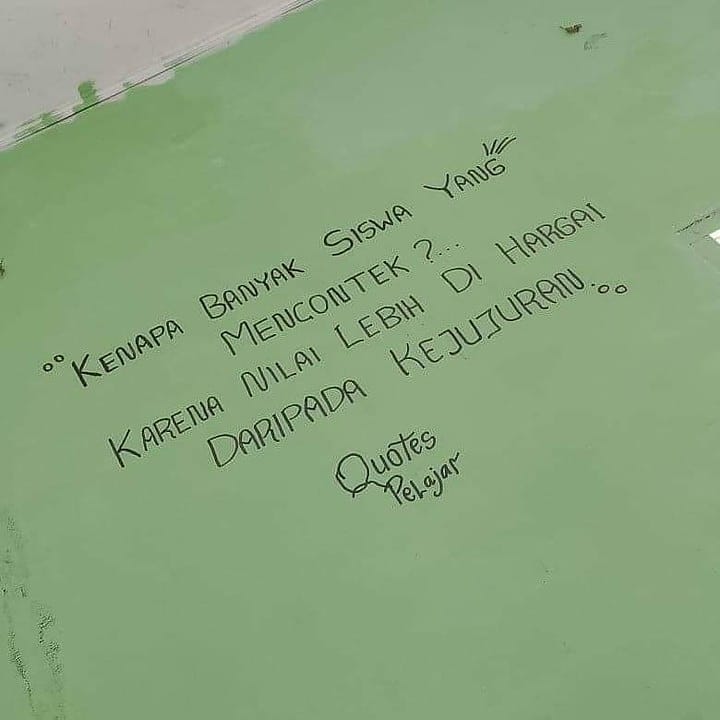 "KENAPA BANYAK SISWA YANG
MENCONTEK ?...
KARENA NILAI LEBIH DI HARGAI
DARIPADA KEJUJURAN."
QUOTES
PELajar